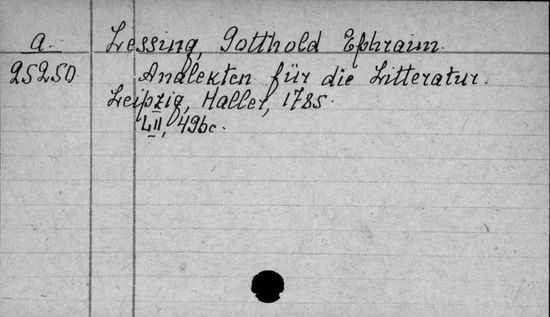 a. Lessing, Gotthold Ephraim.
25250. Analekten für die Litteratur.
Leipzig, Haller, 1785.
49bc.